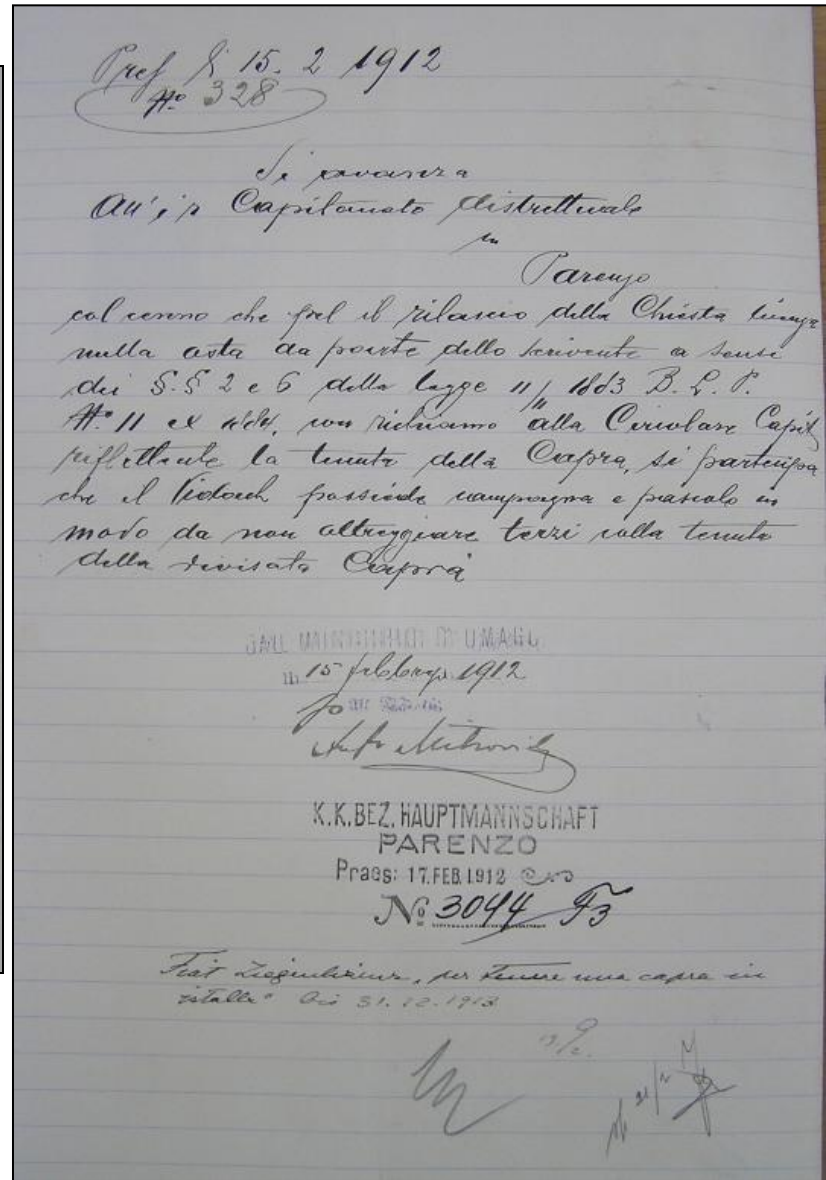 Pres. li 15. 2 1912
No 328
Si avanza
All' i r Capitanato distrettuale
in
Parenzo
col cenno che pel il rilascio della Chiesta
nulla osta da parte dello scrivente a sensi
dei §.§ 2 e 6 della legge 11/11 1883 B. L. P.
No 11 ex 1884, con richiamo alla Circolare Capit
riflettente la tenuta della Capra, si partecipa
che il Vidach possiede campagna e pascolo in
modo da non altreggiare terzi colla tenuta
della divisata Capra
UMAGO
li 15 febbrajo 1912
Mitrovich
K.K.BEZ. HAUPTMANNSCHAFT
PARENZO
Praes: 17.FEB.1912
No 3044 F3
Fiat Ziegenlizenz, per tenere una capra in
istalla" bis 31.12.1913